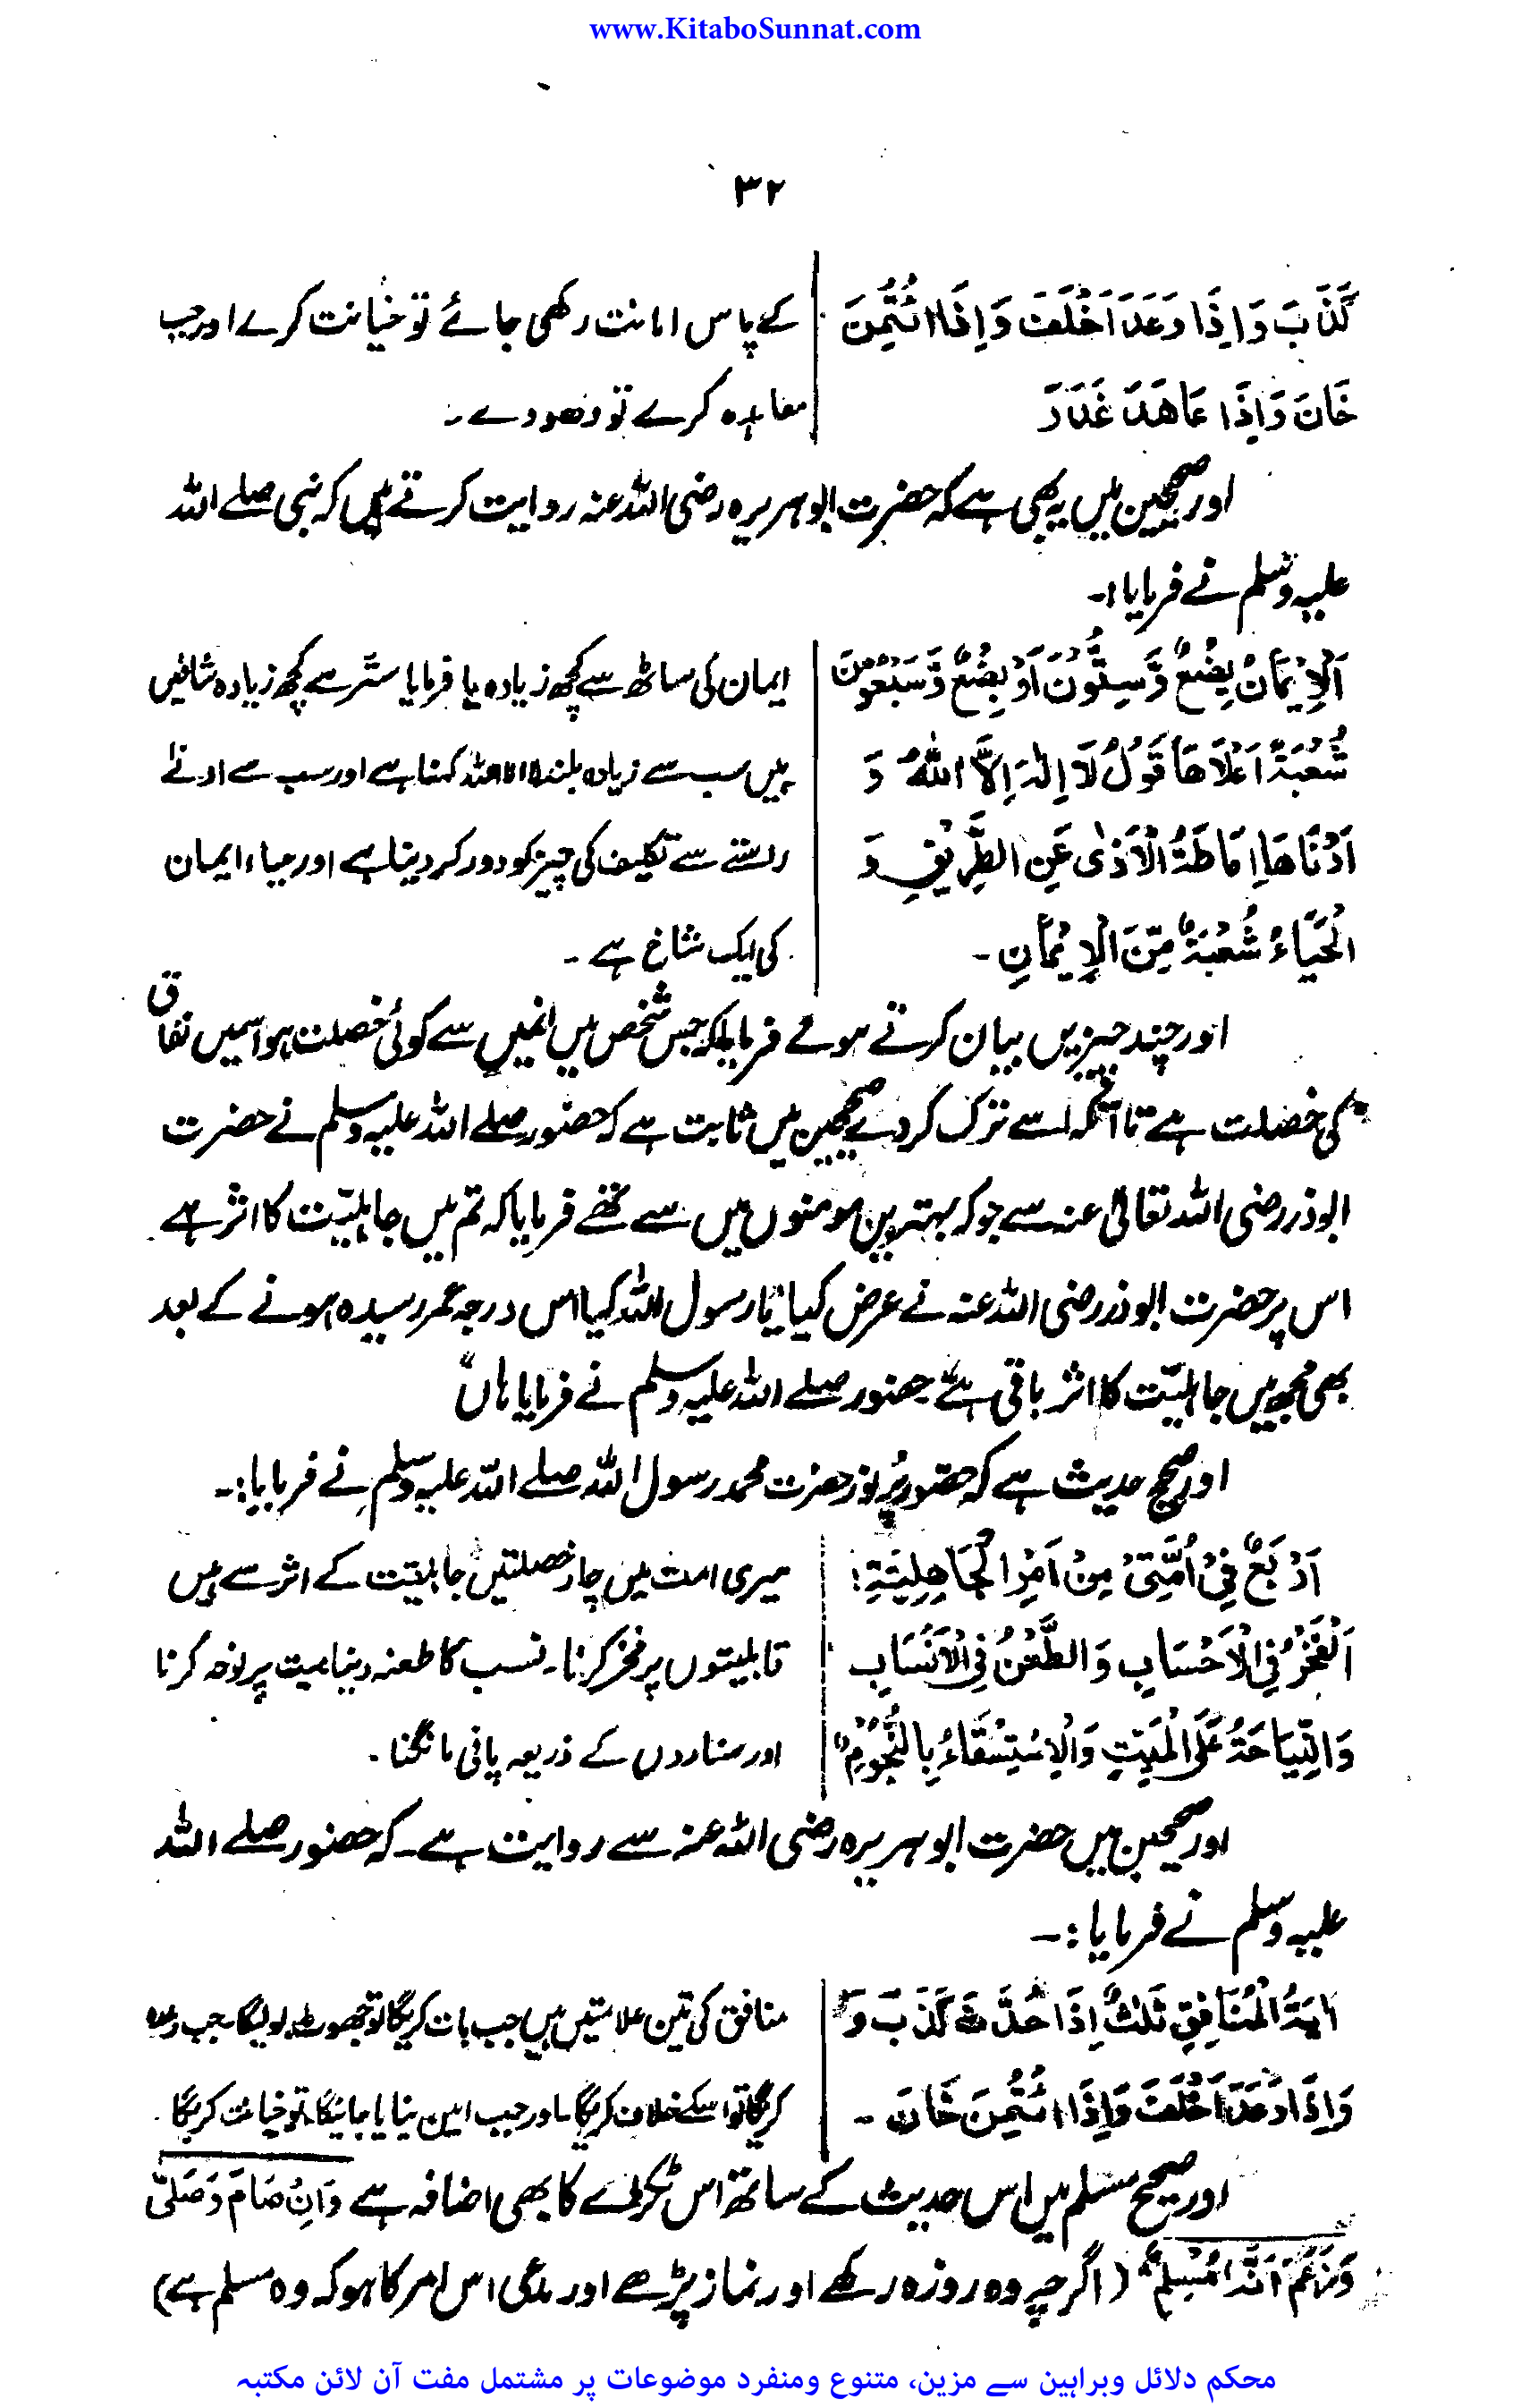 www.KitaboSunnat.com
۳۲
كَذَبَ وَاِذَا وَعَدَ اَخْلَفَ وَاِذَا ائْتُمِنَ
خَانَ وَاِذَا عَاهَدَ غَدَرَ
کے پاس امانت رکھی جائے تو خیانت کرے اور جب
معاہدہ کرے تو دھوو دے۔
اور صحیحین میں یہ بھی ہے کہ حضرت ابوہریرہ رضی اللہ عنہ روایت کرتے ہیں کہ نبی صلے اللہ
علیہ وسلم نے فرمایا:۔
اَلْاِيْمَانُ بِضْعٌ وَّسِتُّوْنَ اَوْ بِضْعٌ وَّسَبْعُوْنَ
شُعْبَةً اَعْلَاهَا قَوْلُ لَا اِلٰهَ اِلَّا اللّٰهُ وَ
اَدْنَاهَا اِمَاطَةُ الْاَذٰى عَنِ الطَّرِيْقِ وَ
الْحَيَاءُ شُعْبَةٌ مِّنَ الْاِيْمَانِ۔
ایمان کی ساٹھ سے کچھ زیادہ یا فرمایا ستر سے کچھ زیادہ شاخیں
ہیں سب سے زیادہ بلند لا الا اللہ کہنا ہے اور سب سے ادنےٰ
رستے سے تکلیف کی چیز کو دور کر دینا ہے اور حیاء ایمان
کی ایک شاخ ہے۔
اور چند چیزیں بیان کرتے ہوئے فرمایا کہ جس شخص میں انمیں سے کوئی خصلت ہو اسمیں نفاق
کی خصلت ہے تا آنکہ اسے ترک کر دے صحیحین میں ثابت ہے کہ حضور صلے اللہ علیہ وسلم نے حضرت
ابوذر رضی اللہ تعالیٰ عنہ سے جو کہ بہترین مومنوں میں سے تھے فرمایا کہ تم میں جاہلیّت کا اثر ہے
اس پر حضرت ابوذر رضی اللہ عنہ نے عرض کیا "یا رسول اللہ کیا اس درجہ عمر رسیدہ ہونے کے بعد
بھی مجھ میں جاہلیّت کا اثر باقی ہے" حضور صلے اللہ علیہ وسلم نے فرمایا "ہاں"
اور صحیح حدیث ہے کہ حضور پُر نور حضرت محمد رسول اللہ صلے اللہ علیہ وسلم نے فرمایا:۔
اَرْبَعٌ فِيْ اُمَّتِيْ مِنْ اَمْرِ الْجَاهِلِيَّةِ:
اَلْفَخْرُ فِي الْاَحْسَابِ وَالطَّعْنُ فِي الْاَنْسَابِ
وَالنِّيَاحَةُ عَلَى الْمَيِّتِ وَالْاِسْتِسْقَاءُ بِالنُّجُوْمِ"
میری امت میں چار خصلتیں جاہلیّت کے اثر سے ہیں
قابلیتوں پر فخر کرنا۔ نسب کا طعنہ دینا میت پر نوحہ کرنا
اور ستاروں کے ذریعہ پانی مانگنا۔
اور صحیحین میں حضرت ابوہریرہ رضی اللہ عنہ سے روایت ہے۔ کہ حضور صلے اللہ
علیہ وسلم نے فرمایا:۔
اٰيَةُ الْمُنَافِقِ ثَلٰثٌ اِذَا حَدَّثَ كَذَبَ وَ
وَاِذَا وَعَدَ اَخْلَفَ وَاِذَا ائْتُمِنَ خَانَ۔
منافق کی تین علامتیں ہیں جب بات کریگا تو جھوٹ بولیگا۔ جب وعدہ
کریگا تو اسکے خلاف کریگا۔ اور جب امین بنایا جائیگا۔ تو خیانت کریگا۔
اور صحیح مسلم میں اس حدیث کے ساتھ اس ٹکڑے کا بھی اضافہ ہے وَاِنْ صَامَ وَصَلّٰى
وَزَعَمَ اَنَّهٗ مُسْلِمٌ (اگرچہ وہ روزہ رکھے اور نماز پڑھے اور مدعی اس امر کا ہو کہ وہ مسلم ہے)
محکم دلائل وبراہین سے مزین، متنوع ومنفرد موضوعات پر مشتمل مفت آن لائن مکتبہ